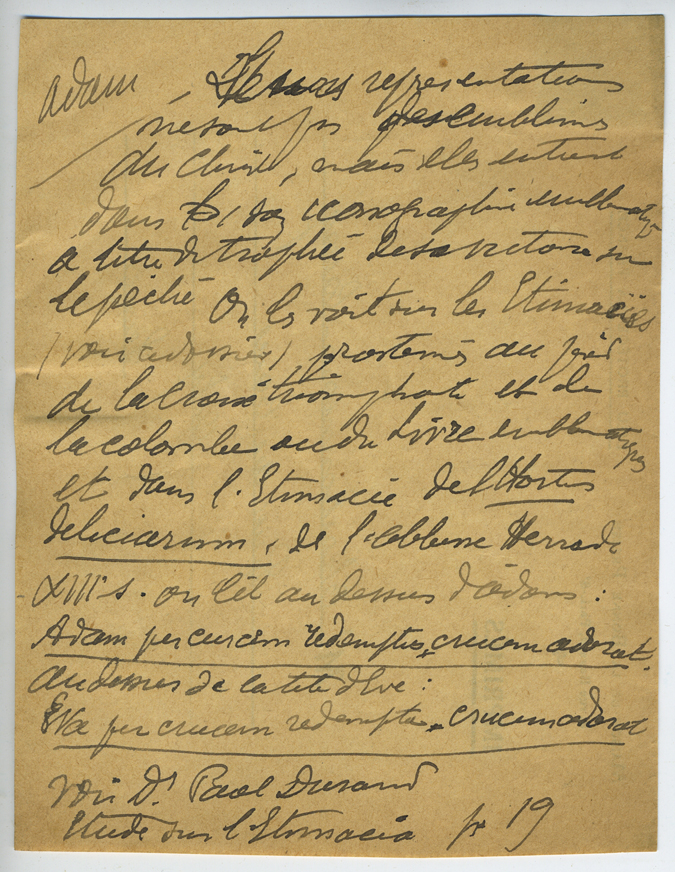 Adam Leurs representations
ne sont pas des emblèmes
du Christ, mais elles entrent
dans iconographie emblematique
a titre de trophée de sa victoire sur
le péché On les voit sur les Etimacies
(voir ce dossier) prosternés au pied
de la croix triomphale et de
la colombe ou du Livre emblematiques
et dans l'Etimacie del Hortus
deliciarum, de l'abbesse Herrade
XIIIe s. on lit au dessus d'adam :
Adam per crucem redemptus crucem adorat.
au dessus de la tête d'Eve :
EVa per crucem redempta crucem adorat
voir Dr Paul Durand
Etude sur l'Etimacia p 19